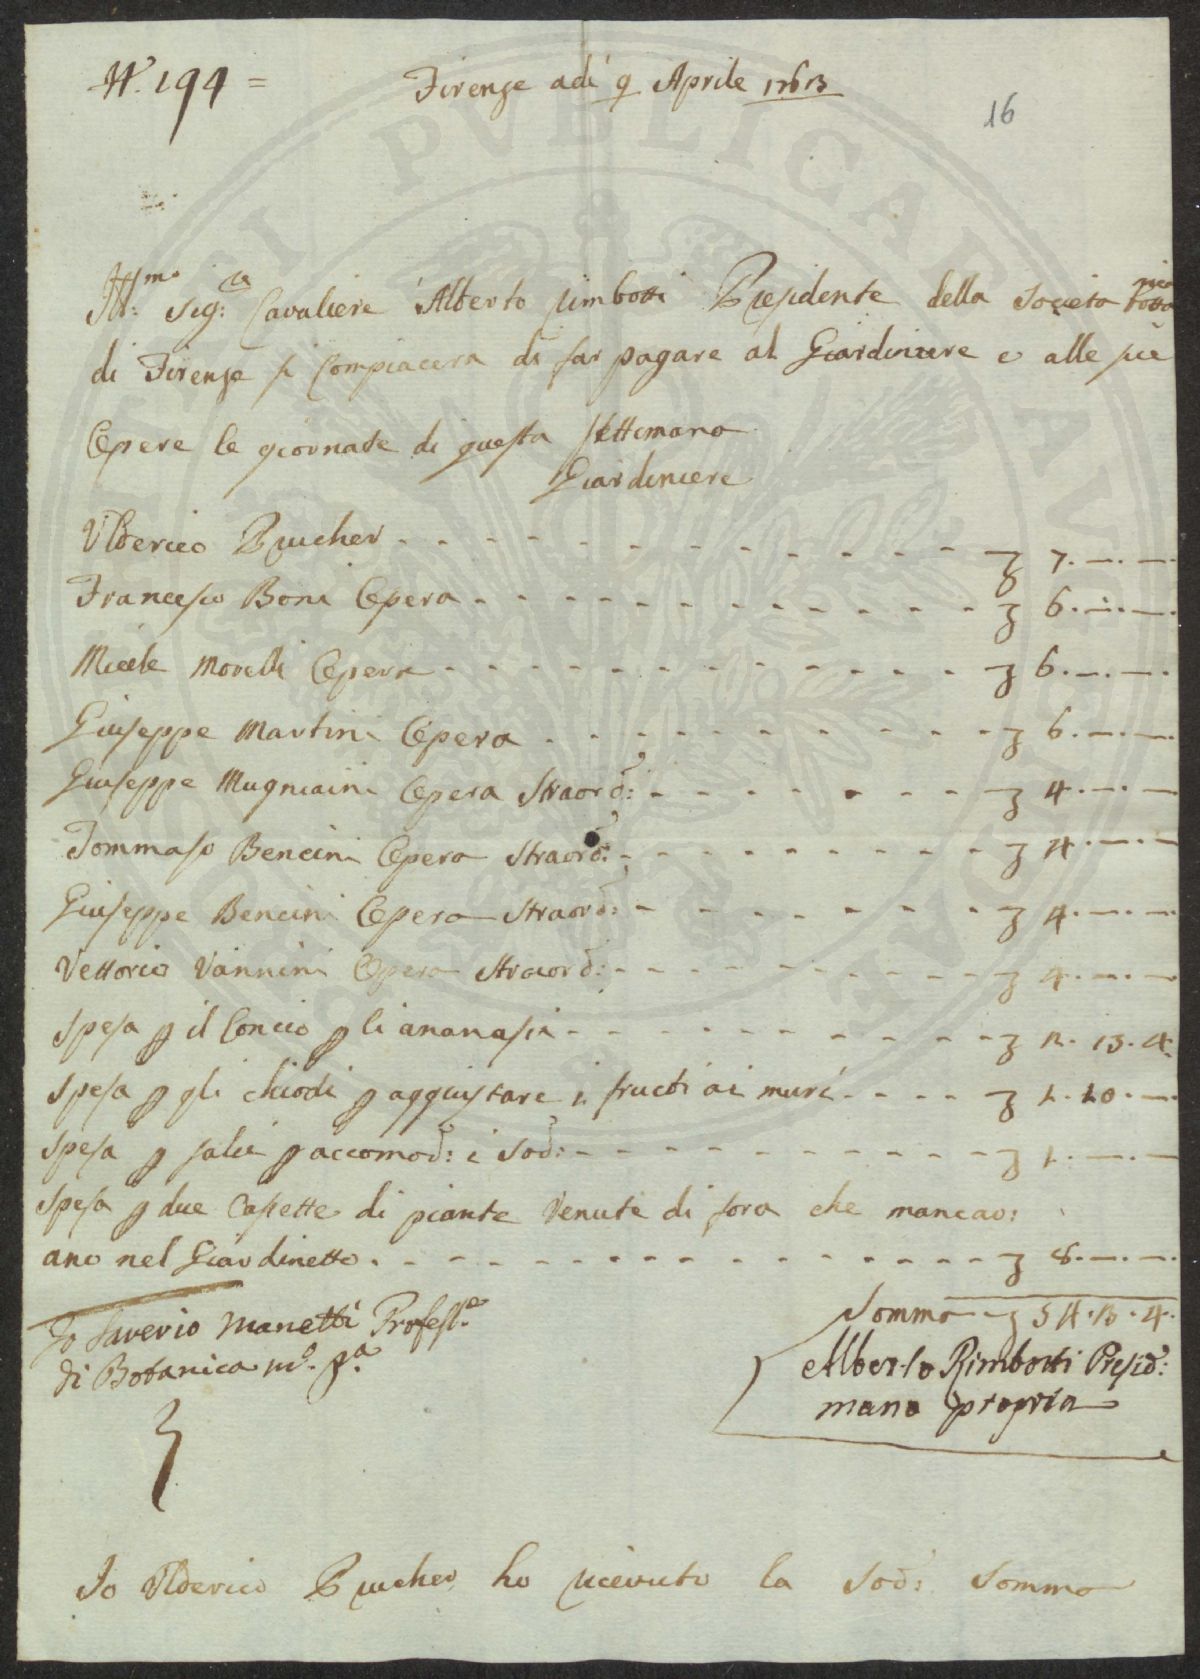 N.° 194 =
Firenze adi 9 Aprile 1763
16
Ill:mo Sig:re Cavaliere Alberto Rimbotti Presidente della Società Botta
nica
di Firenze si Compiacera di far pagare al Giardiniere e alle sue
Opere le giornate di questa settimana
Giardiniere
Ulderico Prucher - - - - - - - - - - - - - - ₶ 7. —. —.
Francesco Boni Opera - - - - - - - - - - - - ₶ 6. —. —.
Micele Morelli Opera - - - - - - - - - - - - ₶ 6. —. —.
Giuseppe Martini Opera - - - - - - - - - - ₶ 6. —. —.
Giuseppe Mugniaini Opera Straord: - - - - - - - ₶ 4. —. —
Tommaso Bencini Opera Straord: - - - - - - - - ₶ 4. —. —
Giuseppe Bencini Opera Straord: - - - - - - - ₶ 4. —. —.
Vettorio Vannini Opera Straord: - - - - - - - - ₶ 4. —. —
Spesa p il Concio p li ananasi - - - - - - - - - ₶ 2. 13. 4.
Spesa p gli chiodi p aggiustare i frutti ai muri - - - - ₶ 1. 10. —
Spesa p salci p accomod: i sod: - - - - - - - - - - ₶ 1. —. —
Spesa p due Casette di piante Venute di fora che mancav:
ano nel Giardinetto - - - - - - - - - - - - - - ₶ 8. —. —.
Somma - ₶ 54. 3. 4.
Io Saverio Manetti Profess.e
di Botanica m.o p.a
Alberto Rimbotti Presid:
mano propria
Io Ulderico Prucher ho ricevuto la sod: Somma